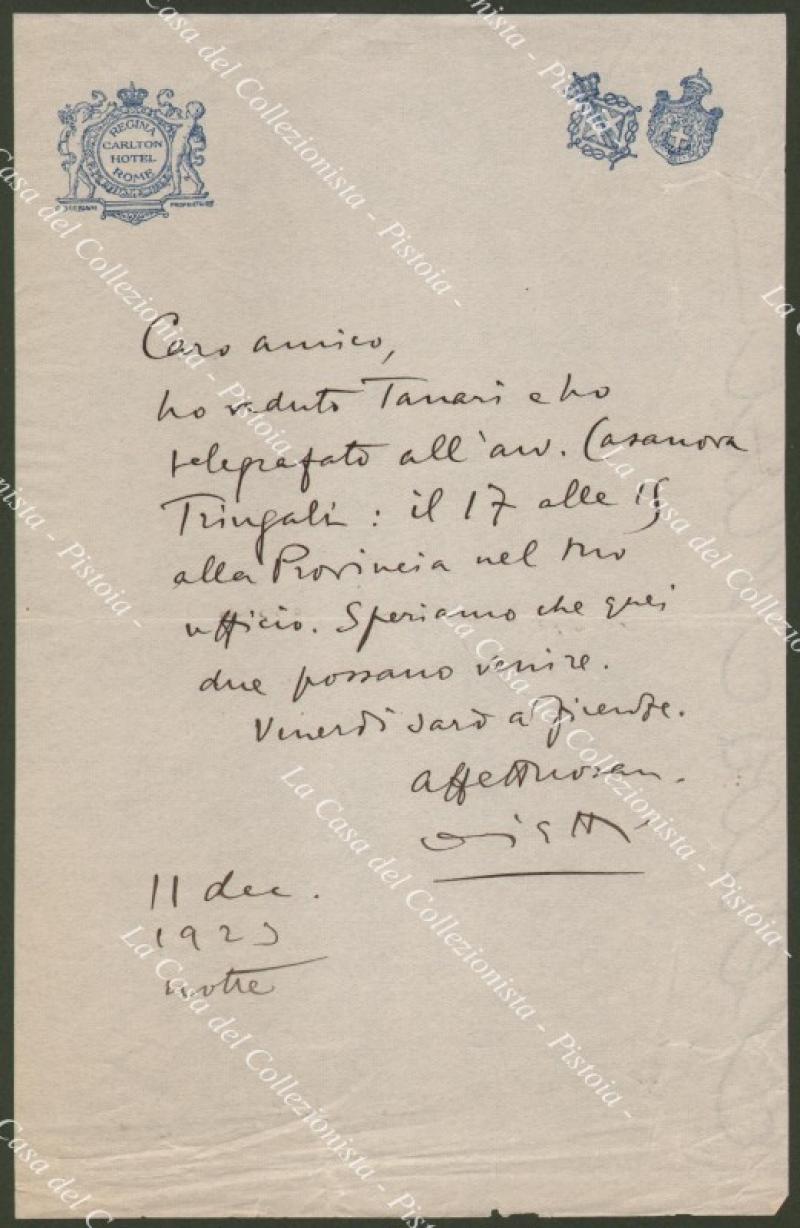 REGINA
CARLTON
HOTEL
ROME
Caro amico,
ho veduto Tanari e ho
telegrafato all'avv. Casanova
Tringali: il 17 alle 15
alla Provincia nel suo
ufficio. Speriamo che quei
due possano venire.
Venerdì sarò a Firenze.
affettuosam.
Ojetti
11 dec.
1923
notte
La Casa del Collezionista - Pistoia -